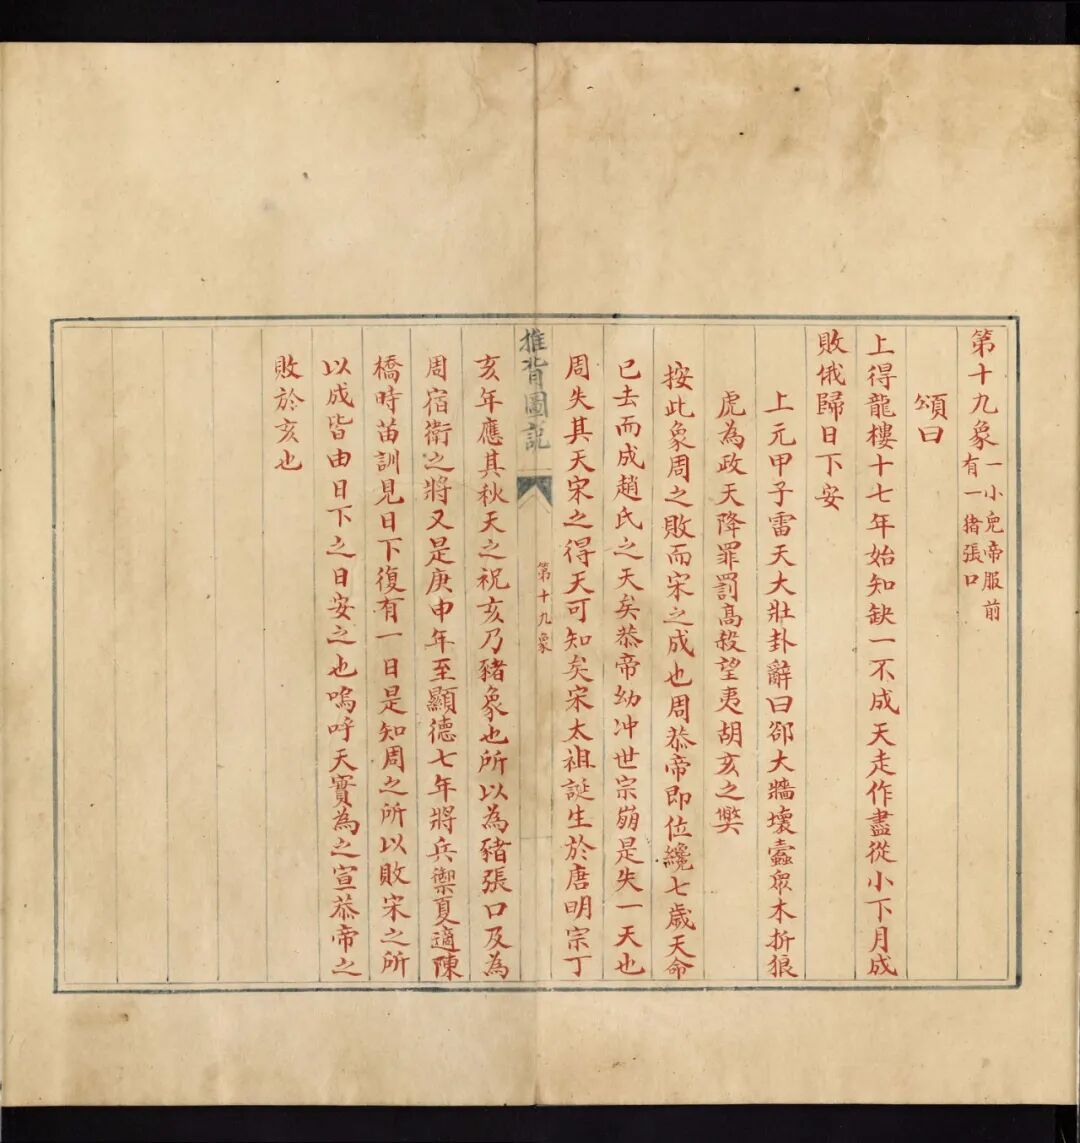 第十九象
一小兒帝服前
有一猪張口
頌曰
上得龍樓十七年始知缺一不成天走作盡從小下月成
敗俄歸日下安
上元甲子雷天大壯卦辭曰郤大牆壞蠹眾木折狼
虎為政天降罪罰高殺望夷胡亥之獘
按此象周之敗而宋之成也周恭帝即位纔七歲天命
已去而成趙氏之天矣恭帝幼冲世宗崩是失一天也
周失其天宋之得天可知矣宋太祖誕生於唐明宗丁
推背圖説
第十九象
亥年應其秋天之祝亥乃豬象也所以為豬張口及為
周宿衛之將又是庚申年至顯德七年將兵禦夏適陳
橋時苗訓見日下復有一日是知周之所以敗宋之所
以成皆由日下之日安之也嗚呼天實為之宣恭帝之
敗於亥也